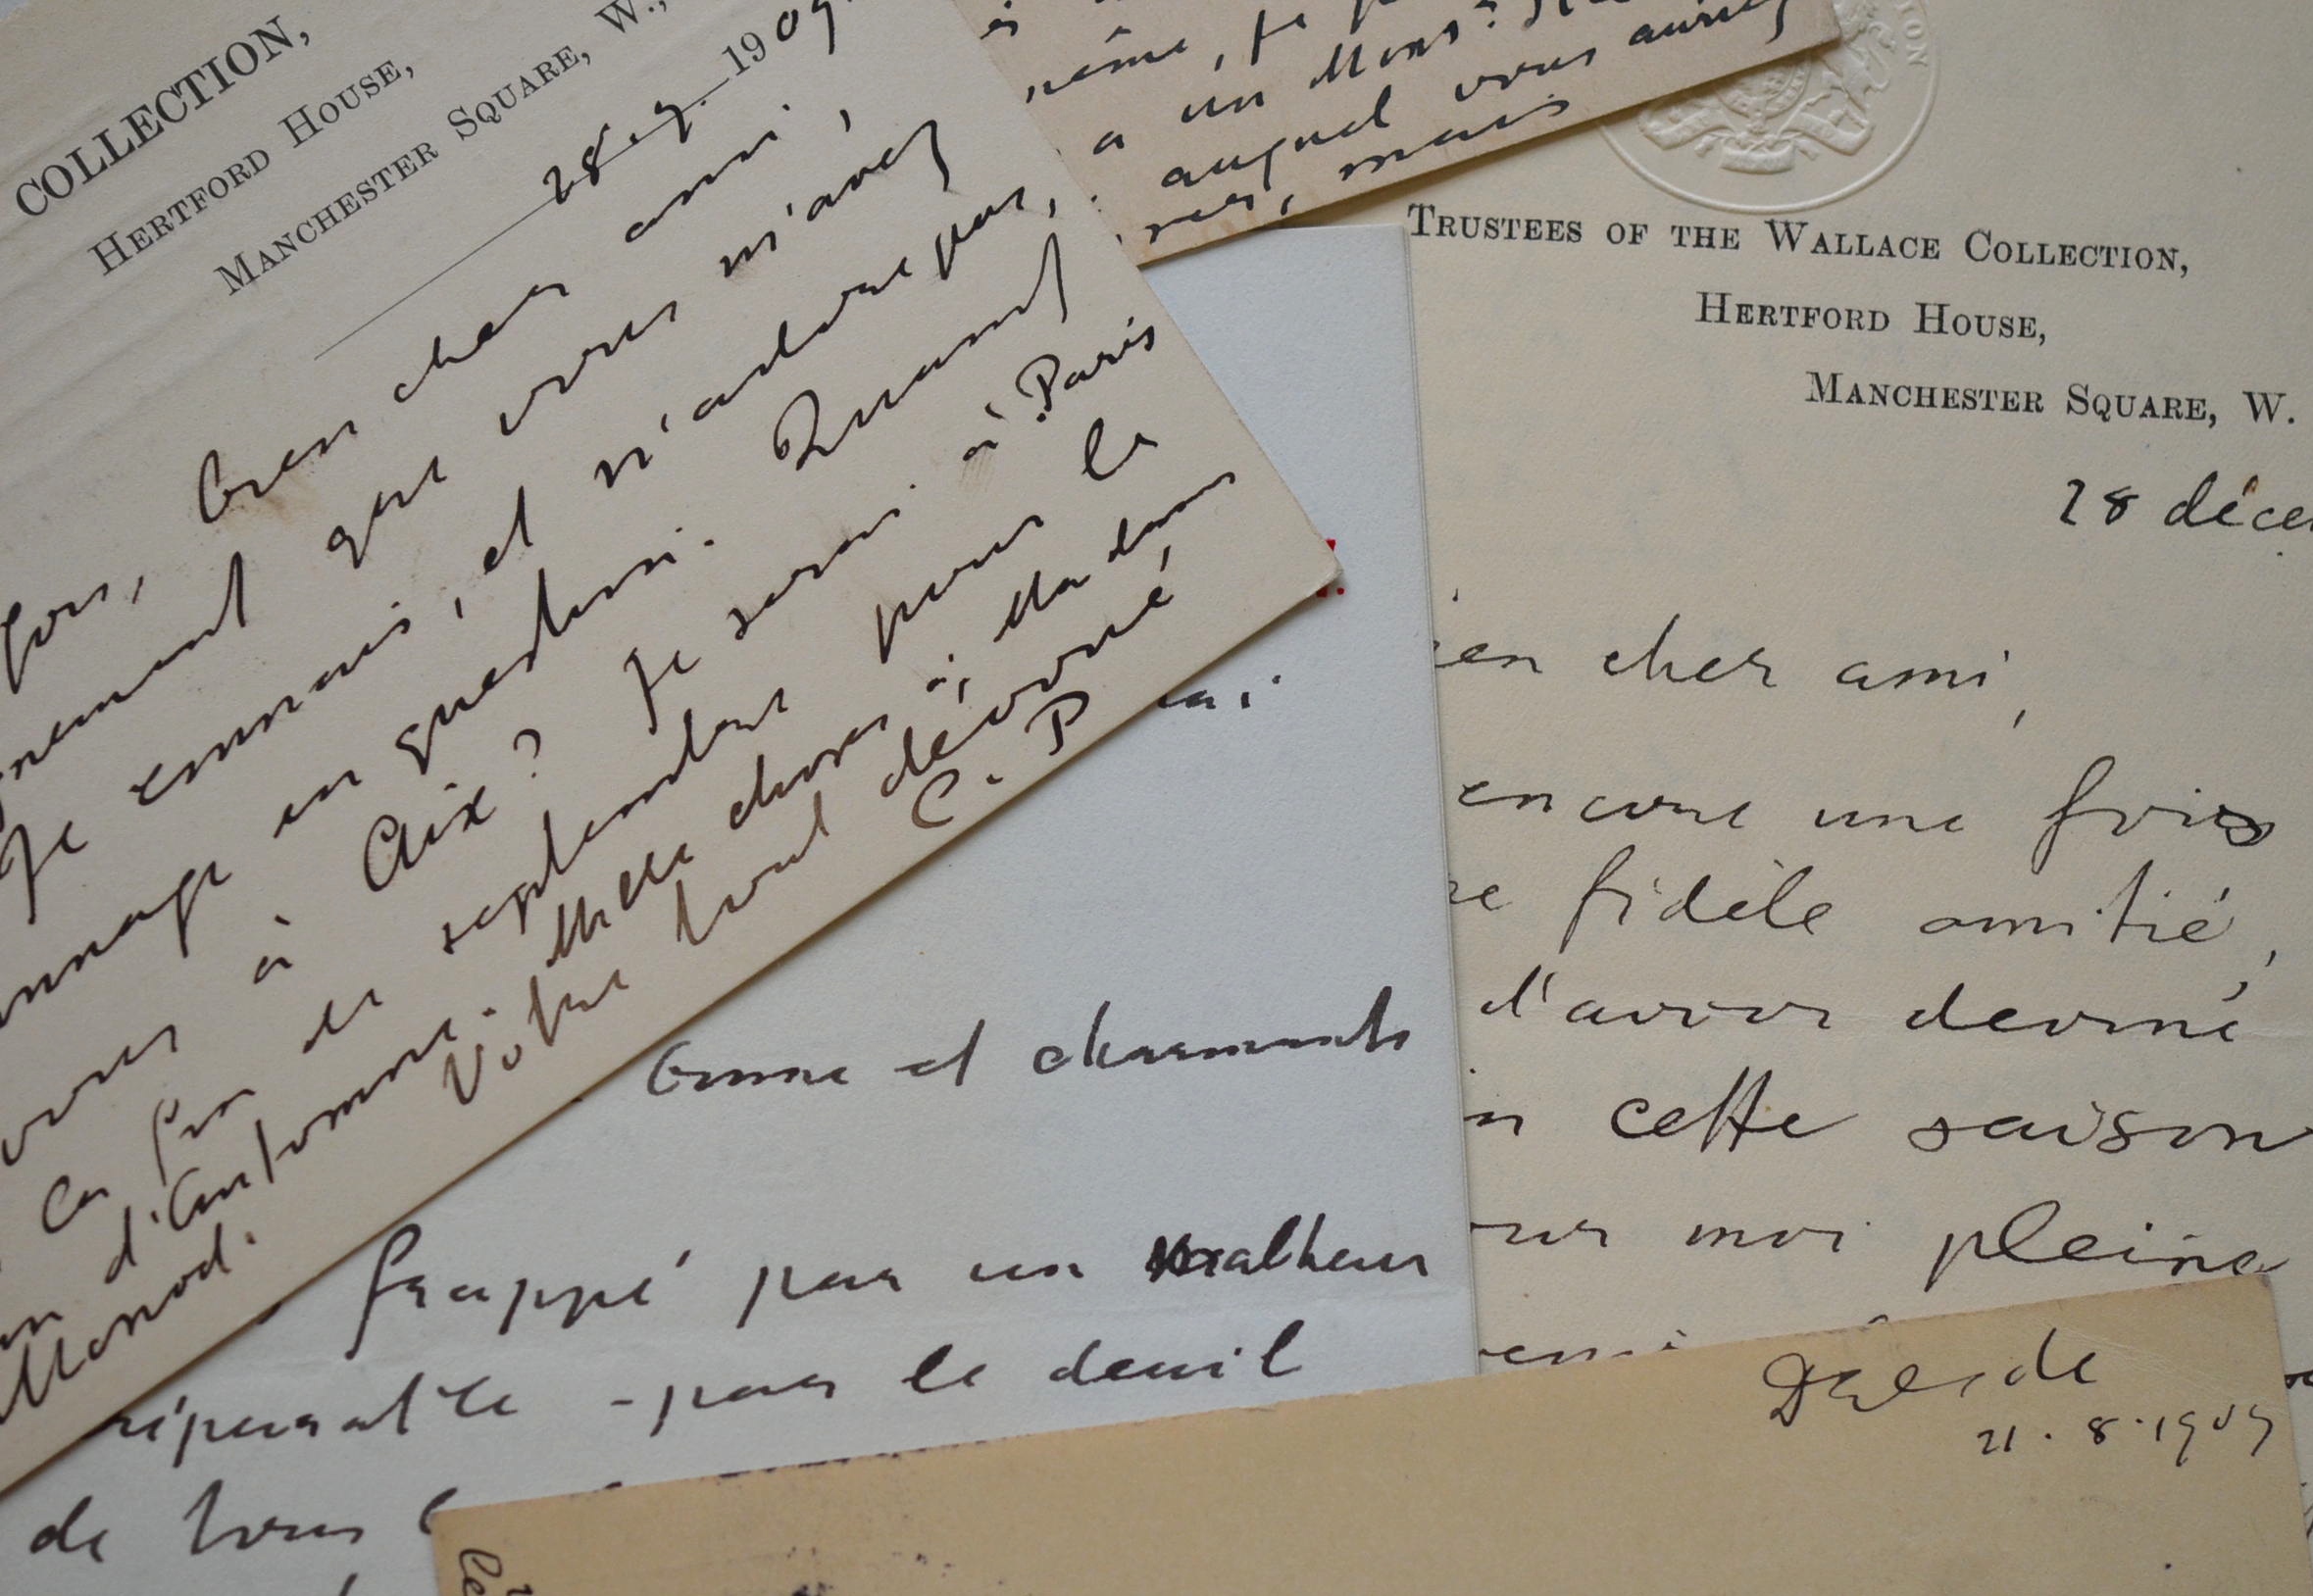 COLLECTION,
HERTFORD HOUSE,
MANCHESTER SQUARE, W.,
28.7.1909.
Bien cher ami,
fois,
que vous m'avez
Je connais, et n'adore pas,
en question. Quand
vous à Aix? Je serai à Paris
la fin de septembre pour le
d'Automne. Mille choses à Madame
Monod.
Votre tout dévoué
C. P
même, je
a un Mons?
auquel vous auriez
mais
TION
TRUSTEES OF THE WALLACE COLLECTION,
HERTFORD HOUSE,
MANCHESTER SQUARE, W.
28 déce
ien cher ami,
encore une fois
re fidèle amitié,
d'avoir deviné
n cette saison
our moi pleine
bonne et charmante
frappé par un malheur
réparable - par le deuil
de tous
21.8.1909